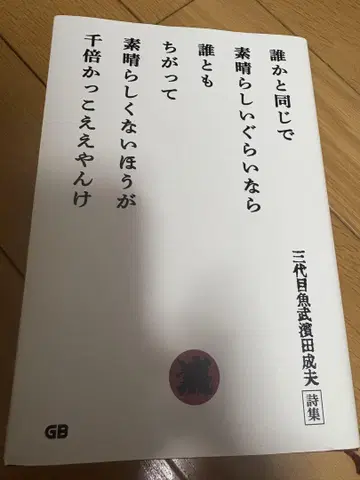 誰かと同じで
素晴らしいぐらいなら
誰とも
ちがって
素晴らしくないほうが
千倍かっこええやんけ
三代目魚武濱田成夫
詩集
GB